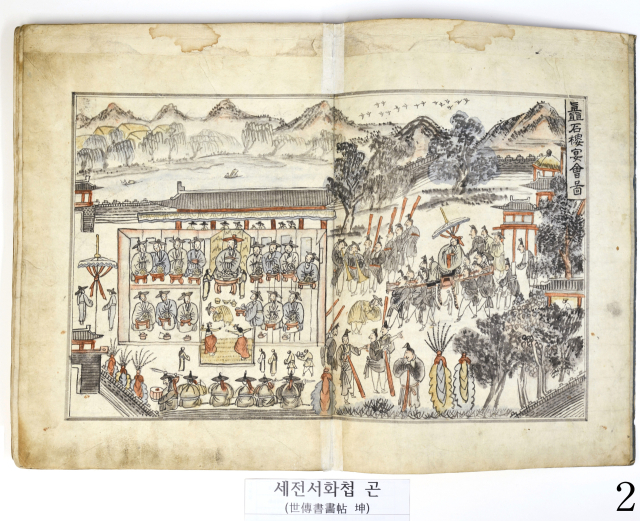 矗石樓宴會圖
세전서화첩 곤
(世傳書畵帖 坤)
2